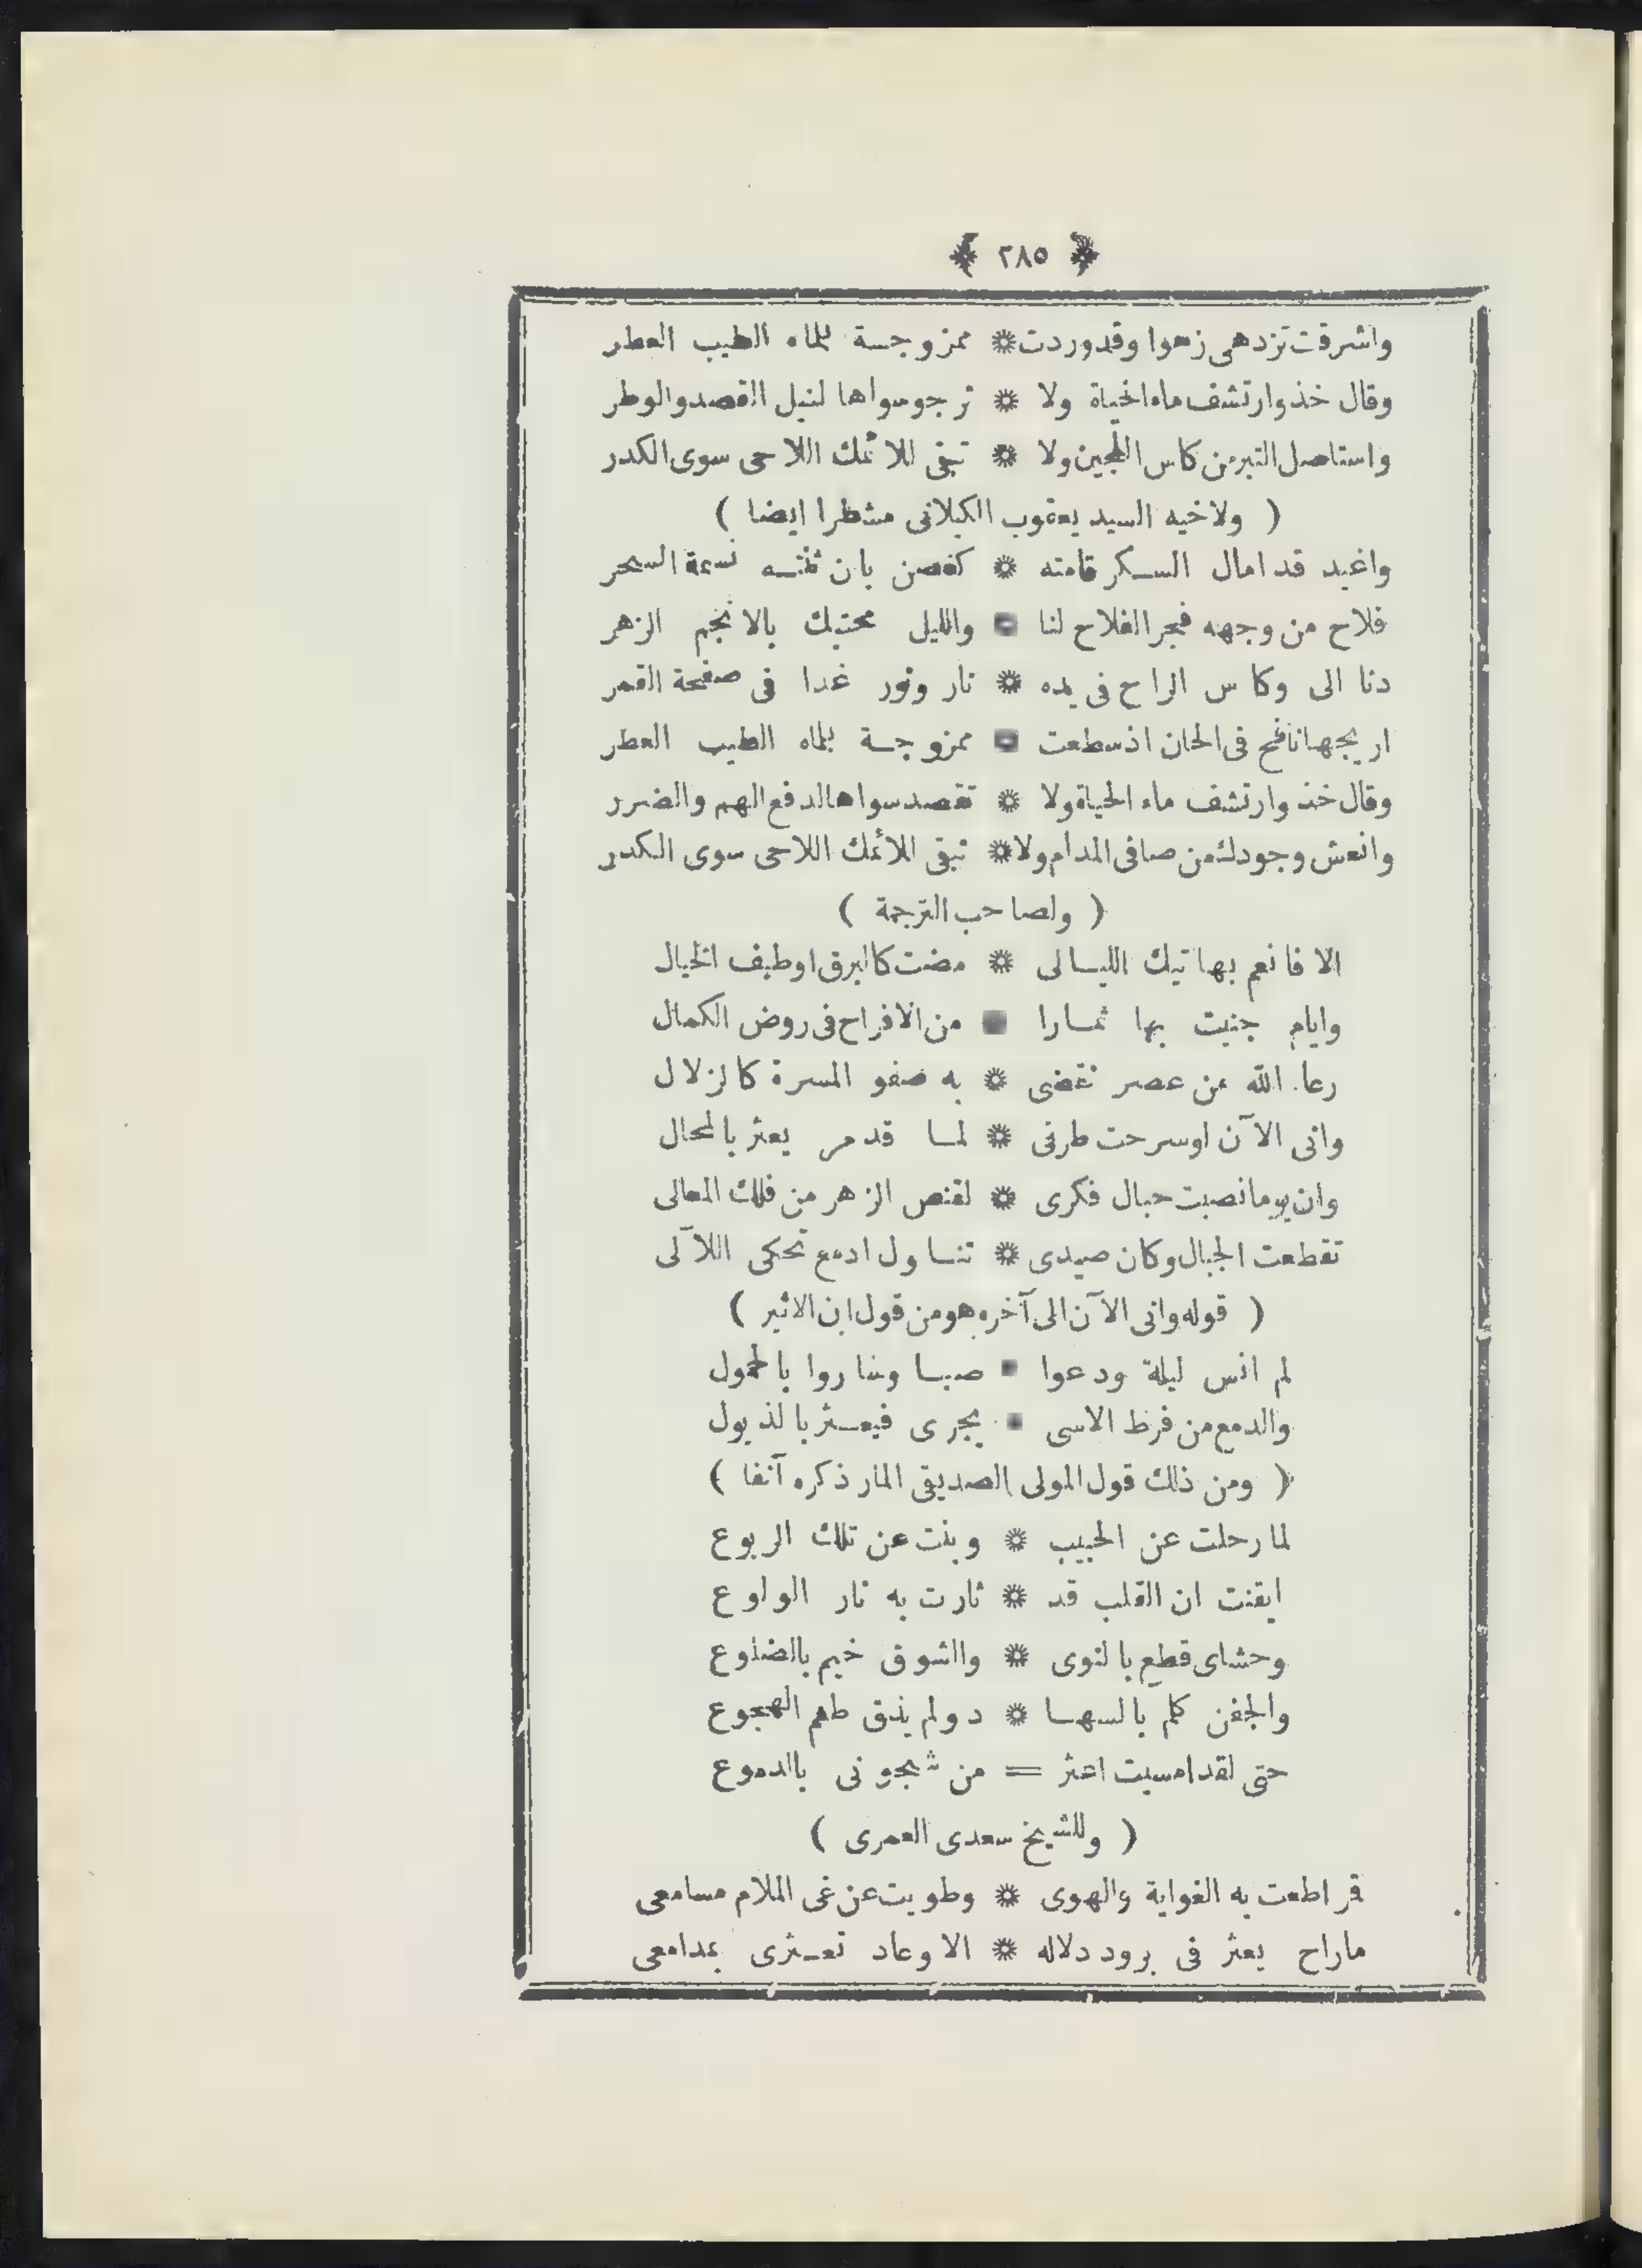 ﴿ ٢٨٥ ﴾
واشرقت تزدهى زهوا وقد وردت * ممزوجة بلماه الطيب العطر
وقال خذ وارتشف ماء الحياة ولا * ترجو سواها لنيل القصد والوطر
واستاصل التبر من كاس اللجين ولا * تبقى للائمك اللاحى سوى الكدر
( ولاخيه السيد يعقوب الكيلانى مشطرا ايضا )
واغيد قد امال السكر قامته * كغصن بان ثنته نسمة السحر
فلاح من وجهه فجر الفلاح لنا * والليل محتبك بالانجم الزهر
دنا الى وكاس الراح فى يده * نار ونور غدا فى صفحة القمر
اريجها نافح فى الحان اذ سطعت * ممزوجة بلماه الطيب العطر
وقال خذ وارتشف ماء الحياة ولا * تقصد سواها لدفع الهم والضرر
وانعش وجودك من صافى المدام ولا * تبقى للائمك اللاحى سوى الكدر
( ولصاحب الترجمة )
الا فانعم بهاتيك الليالى * مضت كالبرق او طيف الخيال
وايام جنيت بها ثمارا * من الافراح فى روض الكمال
رعا الله من عصر تقضى * به صفو المسرة كالزلال
وانى الآن لو سرحت طرفى * لما قد مر يعثر بالمحال
وان يوما نصبت حبال فكرى * لقنص الزهر من فلك المعالى
تقطعت الحبال وكان صيدى * تناول ادمع تحكى اللآلى
( قوله وانى الآن الى آخره هو من قول ابن الاثير )
لم انس ليلة ودعوا * صبا وساروا بالحمول
والدمع من فرط الاسى * يجرى فيعثر بالذيول
( ومن ذلك قول المولى الصديقى المار ذكره آنفا )
لما رحلت عن الحبيب * وبنت عن تلك الربوع
ايقنت ان القلب قد * ثارت به نار الولوع
وحشاى قطع بالنوى * والشوق خيم بالضلوع
والجفن كلم بالسها * د ولم يذق طعم الهجوع
حتى لقد امسيت اعثر = من شجونى بالدموع
( وللشيخ سعدى العمرى )
قر اطعت به الغواية والهوى * وطويت عن غى الملام مسامعى
ماراح يعثر فى برود دلاله * الا وعاد تعثرى بمدامعى